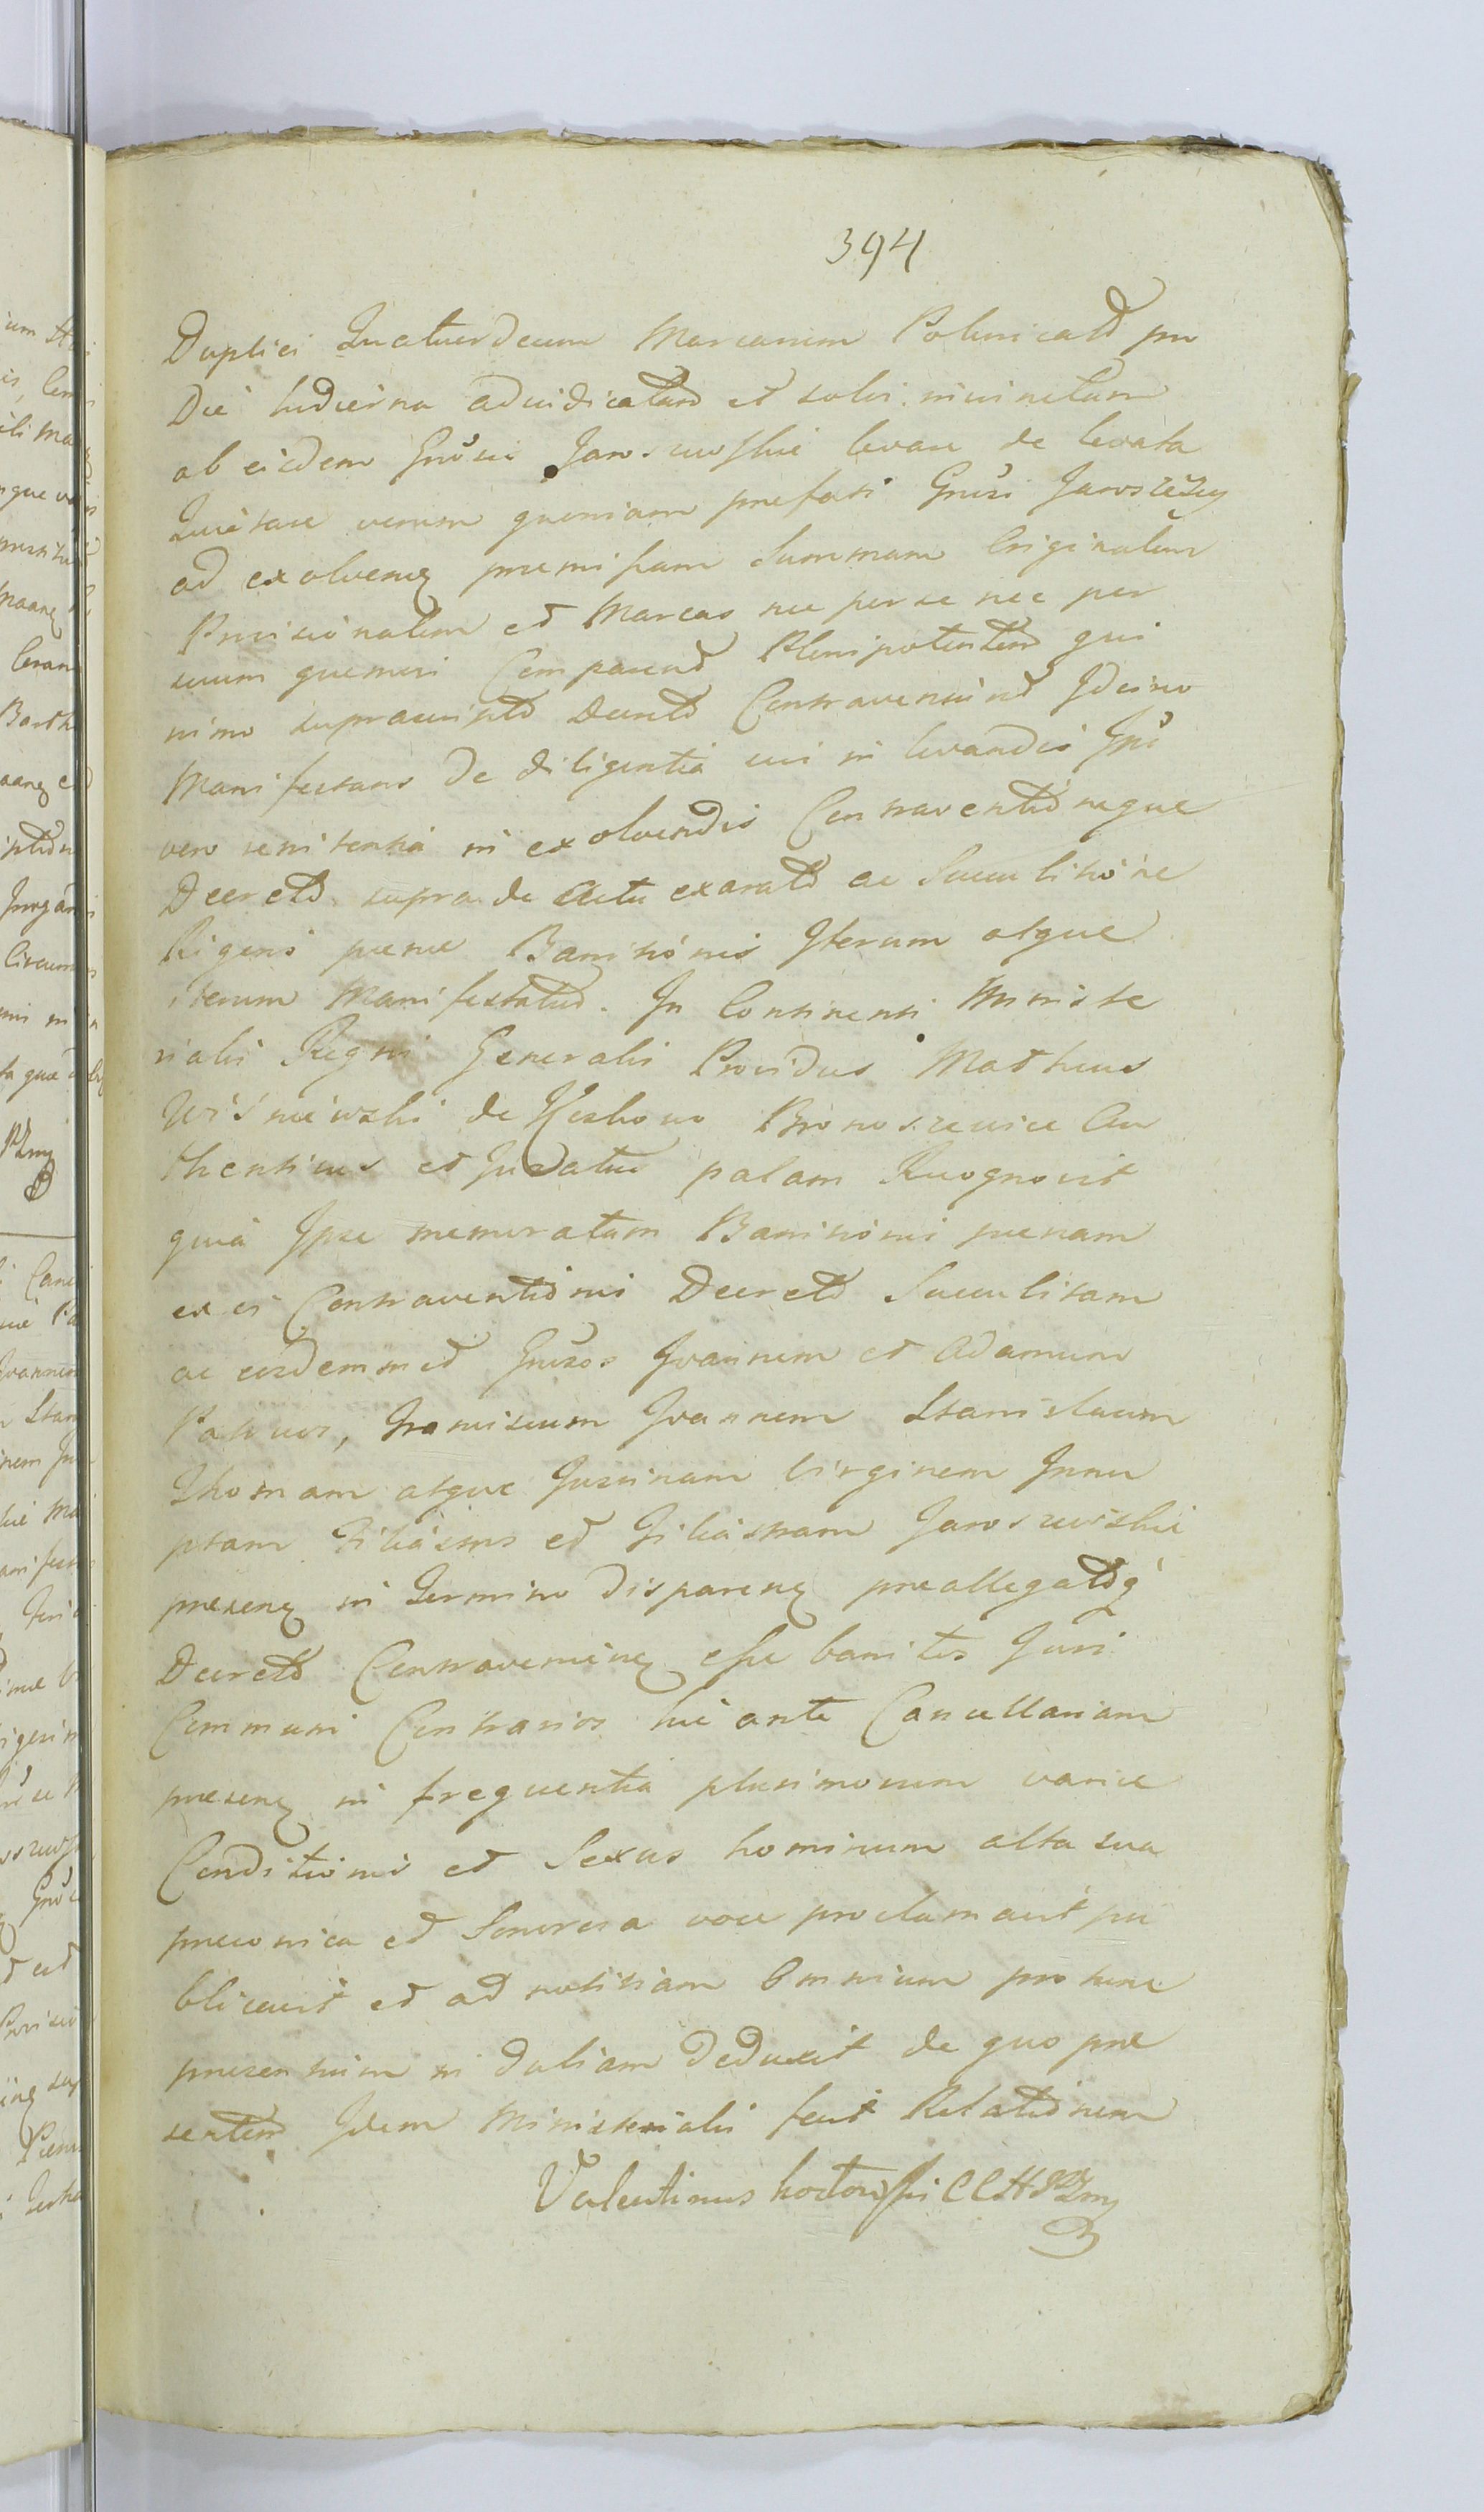 394
Duplici Quatuordecem Marcarum Polonicald pro
Die hodierna adiudicatam et solvi
ab eisdem Gnosis Jaroszewskie levare de levata
Quietare verum quoniam prefati Gnosi Jaroszewy
ad exolvenq premissam Summam Originalem
Provisionalem et Marcas nec per se nec per
suum quemvis Comparend Plenipotentem qui
nimo suprascripto Decreto Contravenerunt Ideirco
Manifestans de diligentia sui in levandis Ipsi
vero renitentia in exolvendis Contraventioneque
Decreto supra de Actu exarato ac Succubitione
Rigens penæ Banitionis Iterum atque
iterum Manifestatus. In Continenti Ministe
rialis Regni Generalis Providus Matheus
Wiśniewski de Bronoszewice Au
thenticus et Juratus palam Recognovit
quia Ipse memoratam Banitionis penam
ex ei Contraventionis Decreto Succubitam
ac eosdemmet Gnosos Joannem et Adamum
Patruos, Franciscum Joannem Stanislaum
Thomam atque Justinam Virginem Innu
ptam Filiasros et Filiastram Jaroszewskie
presenq in Termino Disparenq preallegatoq
Decreto Contravenienq esse banitos Juri
Communi Contrarios hic ante Cancellariam
presenq in frequentia plurimorum variæ
Conditionis et Sexus hominum alta sua
preconica et Sonorosa voce proclamavit pu
blicavit et ad notitiam Omnium pro tunc
presentium deduxit de quo præ
sentem Idem Ministerialis fecit Relationem
Valentinus